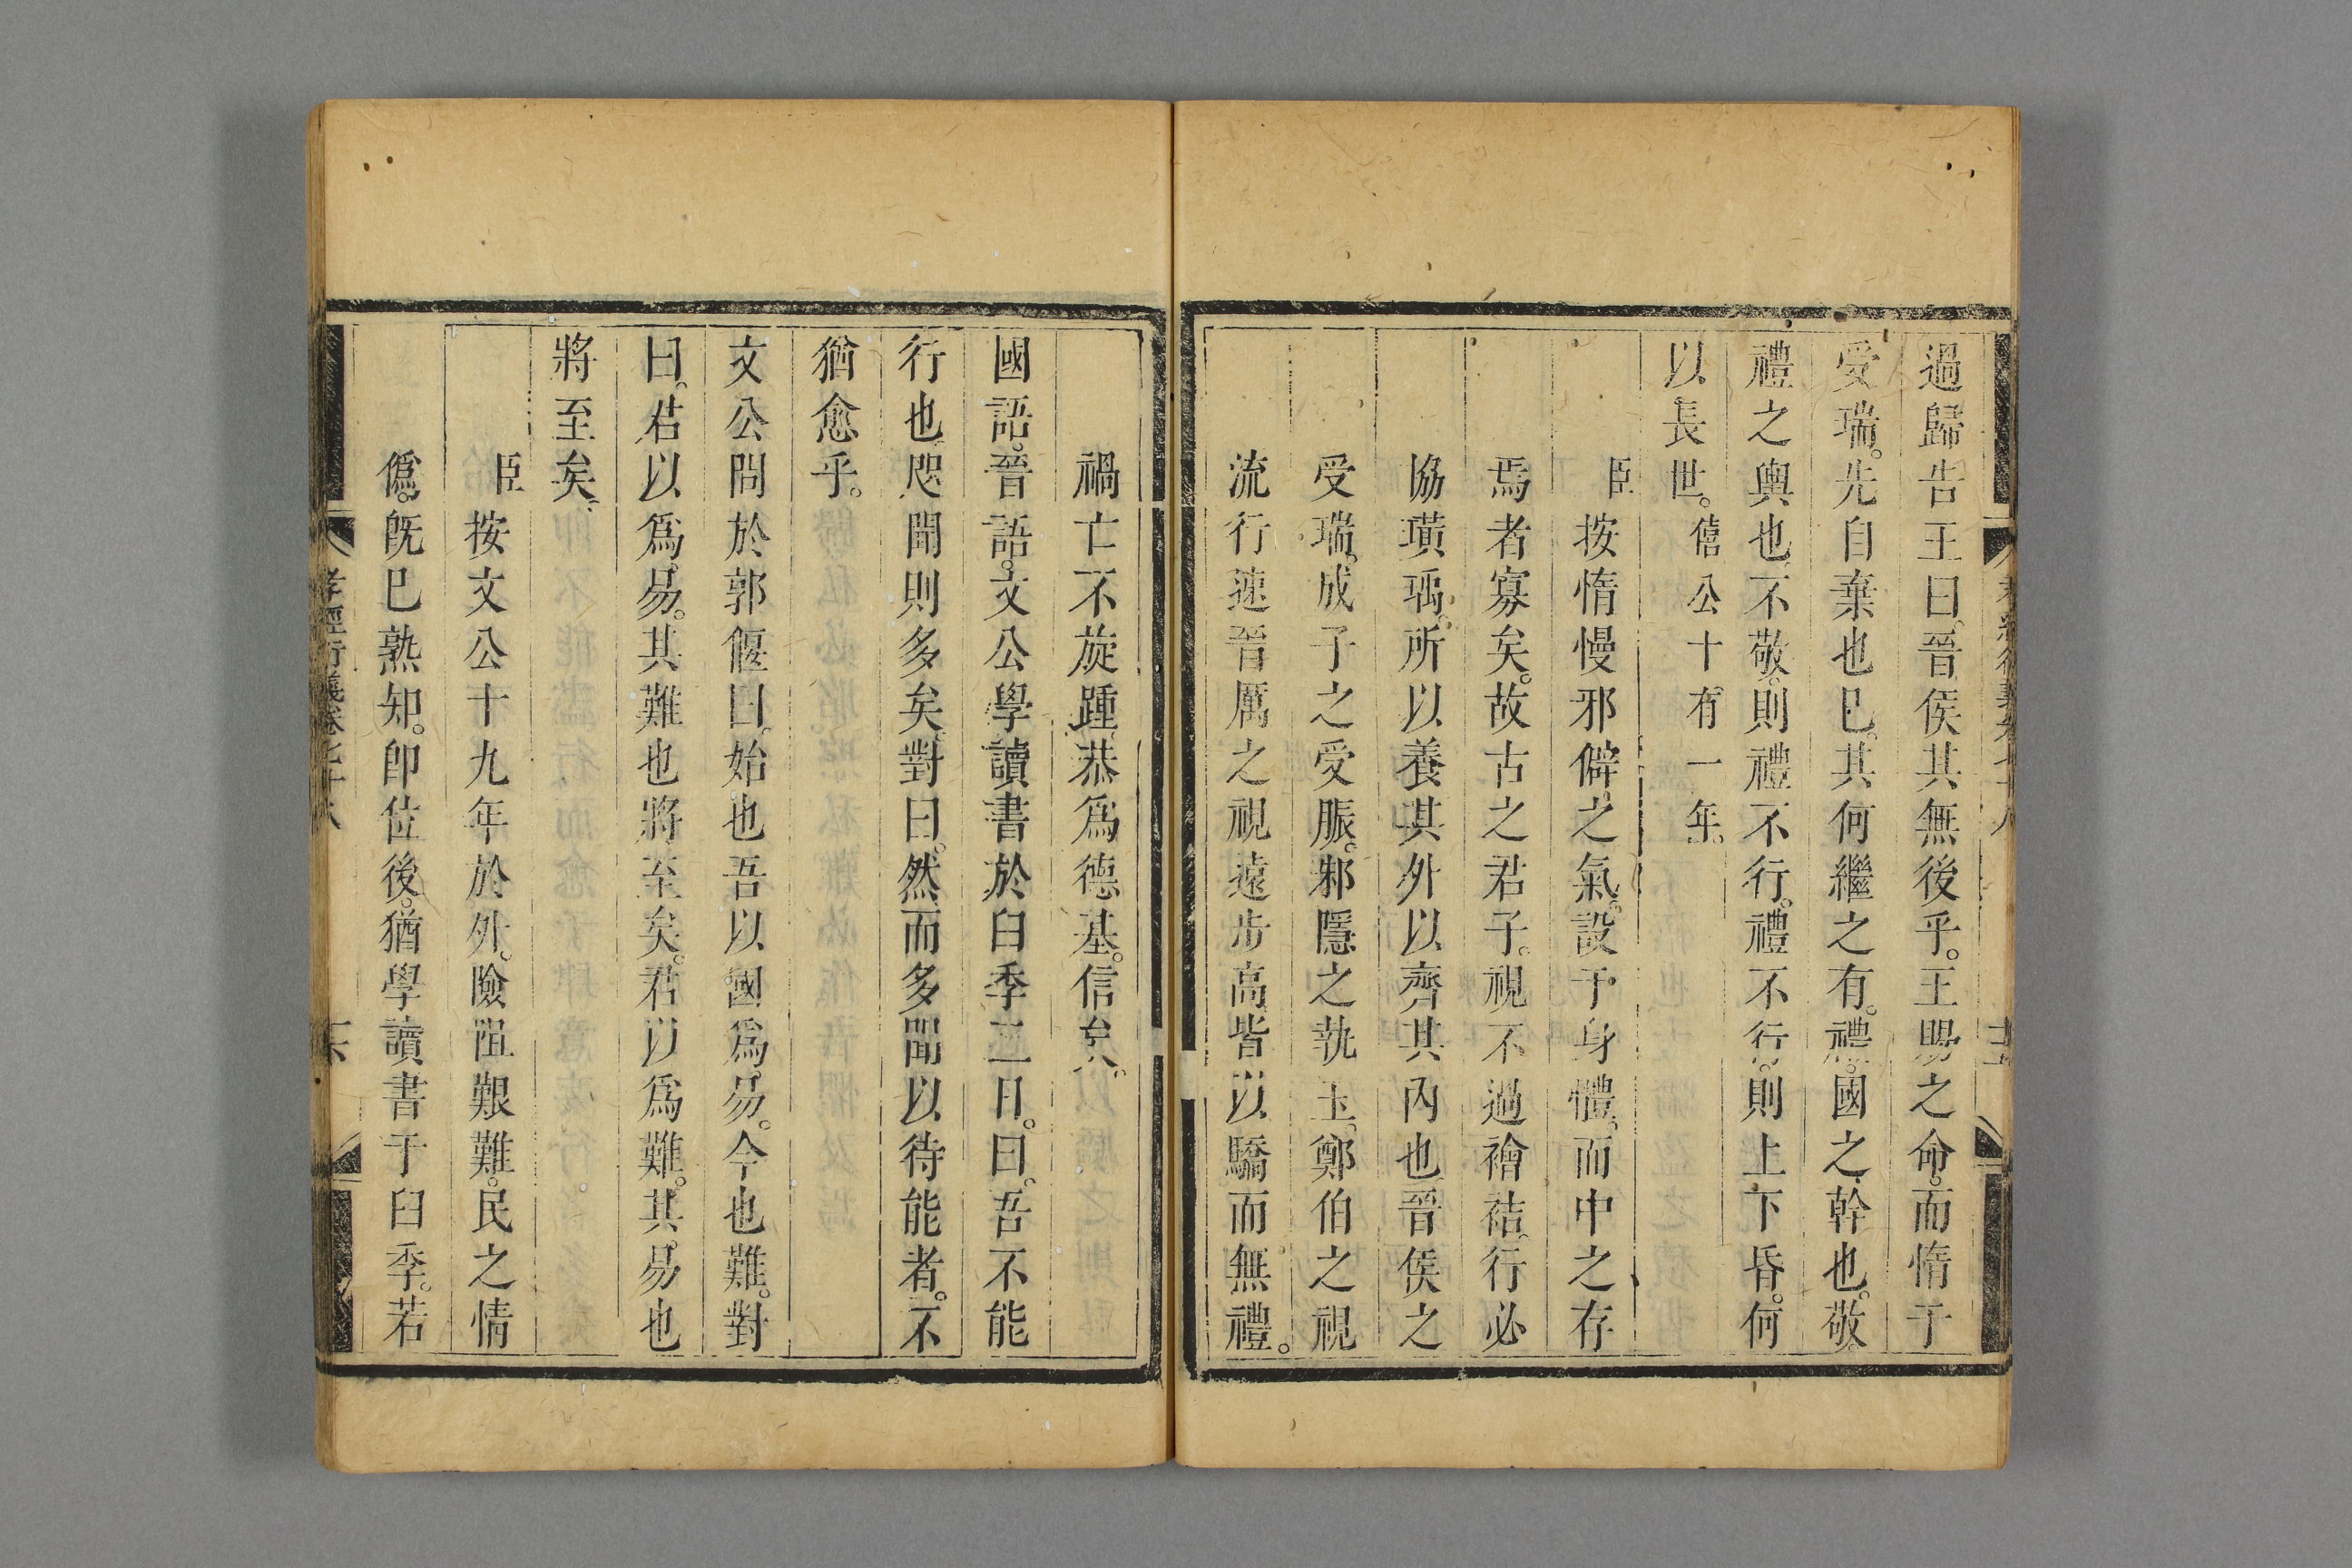 過歸告王曰。晉侯其無後乎。王賜之命。而惰于
受瑞。先自棄也巳。其何繼之有。禮。國之幹也。敬。
禮之輿也。不敬。則禮不行。禮不行。則上下昏。何
以長世。僖公十有一年。
臣按惰慢邪僻之氣。設于身體。而中之存
焉者寡矣。故古之君子。視不過襘袺。行必
協璜瑀。所以養其外以齊其內也晉侯之
受瑞。成子之受脤。邾隱之執玉。鄭伯之視
流行速。晉厲之視遠步高。皆以驕而無禮。
孝經衍義卷七十八
禍亡不旋踵。恭爲德基。信矣。
國語。晉語。文公學讀書於臼季三日。曰。吾不能
行也。咫聞則多矣。對曰。然而多聞以待能者。不
猶愈乎。
文公問於郭偃曰。始也吾以國爲易。今也難。對
曰。君以爲易。其難也將至矣。君以爲難。其易也
將至矣。
臣按文公十九年於外。險阻艱難。民之情
僞。旣巳熟知。卽位後。猶學讀書于臼季。若
孝經衍義卷七十八